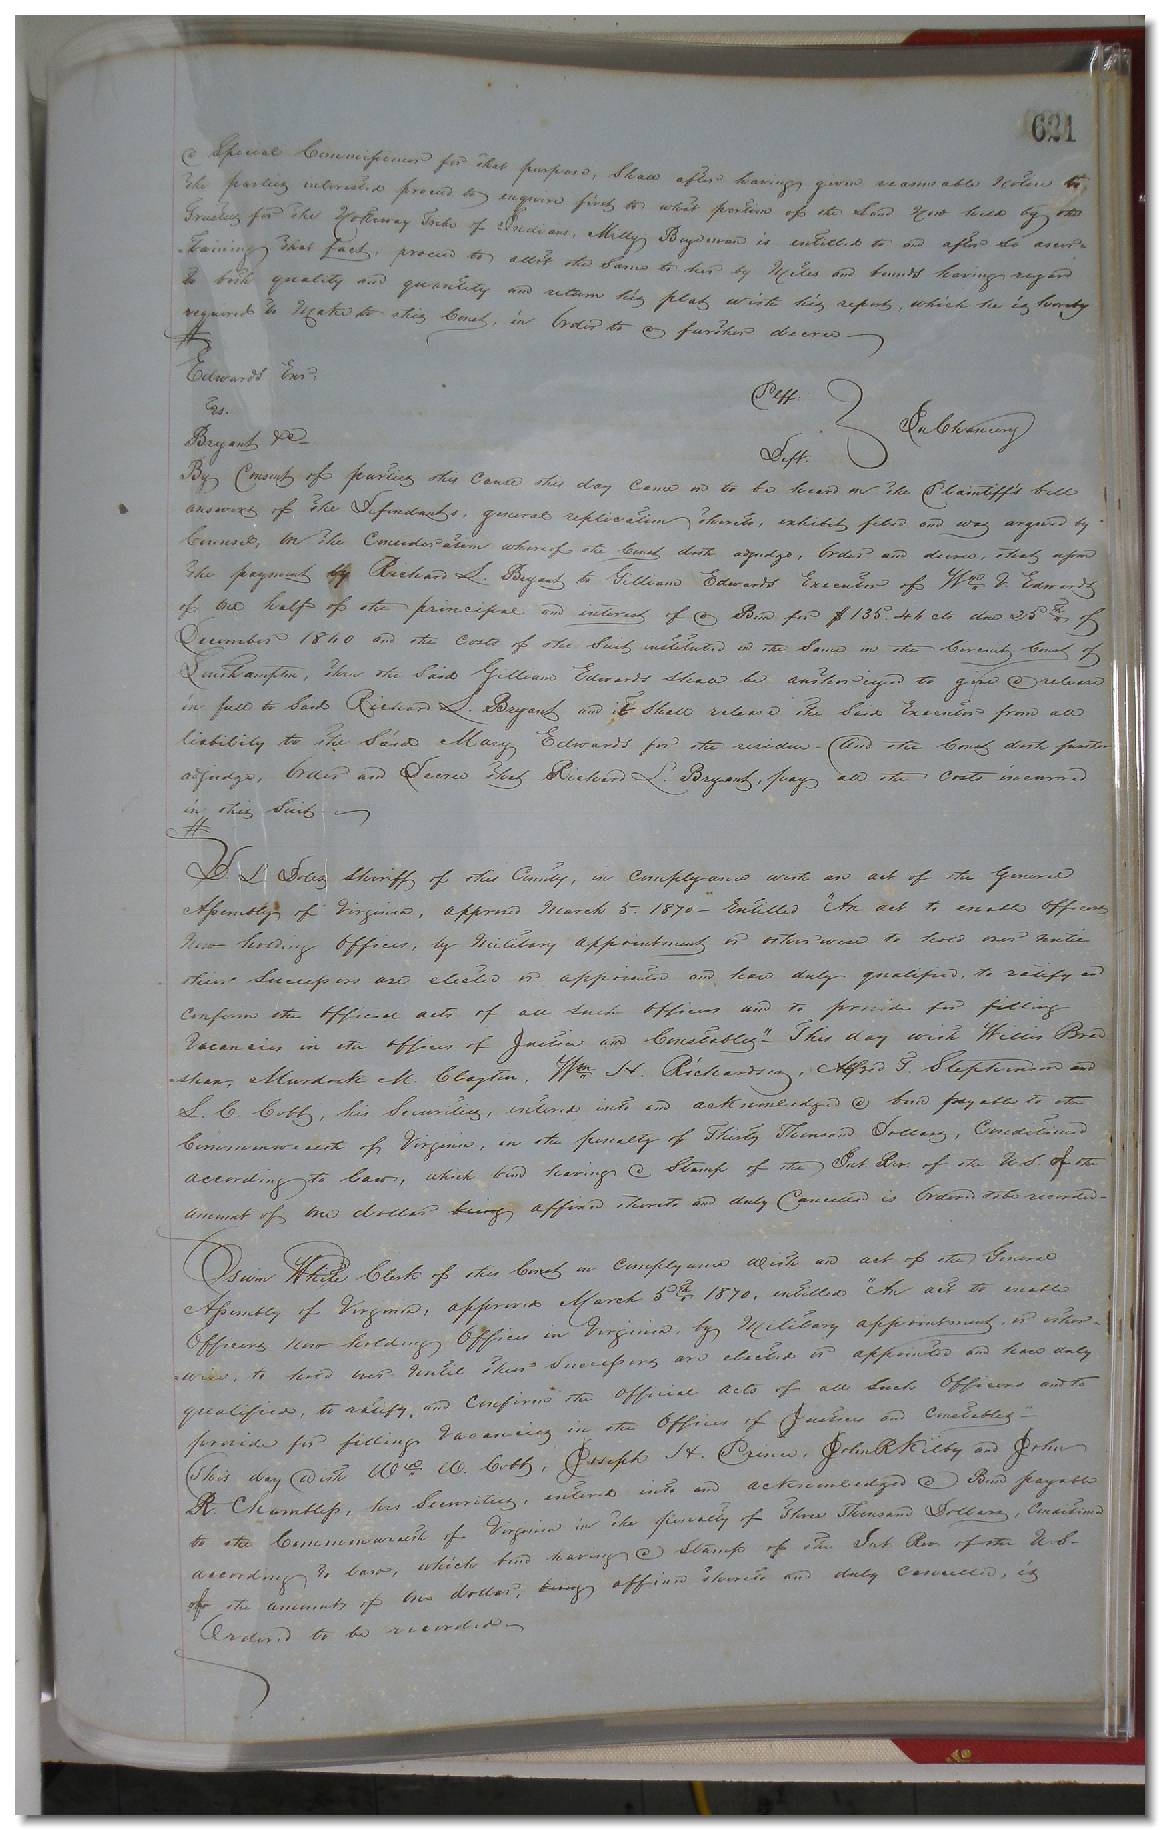 621
a Special Commissioner for that purpose, Shall after having given reasonable Notice to
the parties interested proceed to enquire first to what portion of the Land Now held by the
Trustees for the Nottoway Tribe of Indians, Milly Bozeman is entitled to and after so ascer-
taining that fact, proceed to allot the Same to her by Metes and bounds having regard
to both quality and quantity and return his plat with his report, which he is hereby
required to Make to this Court, in Order to a further decree
Edwards Exr.
vs.
Plff.
In Chancery
Bryant &c
Deft.
By Consent of parties this cause this day came on to be heard on the Plaintiff's bill
answers of the Defendants, general replication thereto, exhibit filed and was argued by
Counsel, on the Consideration whereof the Court doth adjudge, Order and decree, that upon
the payment by Richard L. Bryant to Gilliam Edwards Executor of Wm J Edwards
of one half of the principal and interest of a Bond for $135.44 cts due 25th of
December 1860 and the costs of the Suit instituted on the Same in the Circuit Court of
Southampton, then the Said Gilliam Edwards shall be authorized to give a release
in full to Said Richard L. Bryant and it Shall release the Said Executor from all
liability to the Said Mary Edwards for the residue - And the Court doth further
adjudge, Order and Decree that Richard L. Bryant, pay all the costs incurred
in this Suit
L Sheriff of this County, in complyance with an act of the General
Assembly of Virginia, approved March 5. 1870 - Entitled "An act to enable Officers
Now holding Offices, by Military appointment or otherwise to hold over until
their Successors are elected or appointed and have duly qualified, to ratify and
confirm the official acts of all such officers and to provide for filling
Vacancies in the offices of Justice and Constables" This day with Willis Brad
shaw, Murdock M. Clayton, Wm H. Richardson, Alfred T. Stephenson and
L. C. Cobb, his Securities, entered into and acknowledged a bond payable to the
Commonwealth of Virginia, in the penalty of Thirty Thousand Dollars, Conditioned
according to law, which bond having a Stamp of the Int Rev. of the U.S. of the
amount of one dollar being affixed thereto and duly Cancelled is Ordered to be recorded-
White Clerk of this Court in complyance with an act of the General
Assembly of Virginia, approved March 5th 1870, entitled "An act to enable
Officers now holding Offices in Virginia, by Military appointment, or other-
wise, to hold over Until their Successors are elected or appointed and have duly
qualified, to ratify and confirm the official acts of all such Officers and to
provide for filling Vacancies in the Offices of Justices and Constables"
This day with Wm W. Cobb, Joseph H. Prince, John R Kilby and John
R. Chambliss, his Securities, entered into and acknowledged a Bond payable
to the Commonwealth of Virginia in the penalty of Three Thousand Dollars, Conditioned
according to law, which bond having a Stamp of the Int Rev. of the U.S.
of the amount of one dollar, being affixed thereto and duly cancelled, is
Ordered to be recorded